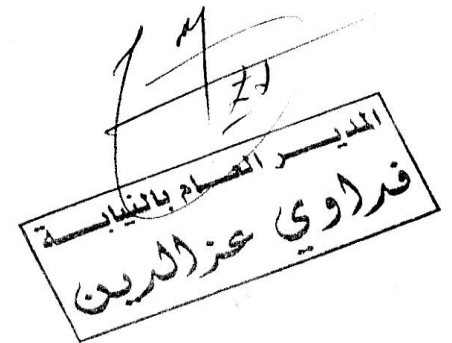 المديــر العــام بالنيابــة
فداوي عزالدين